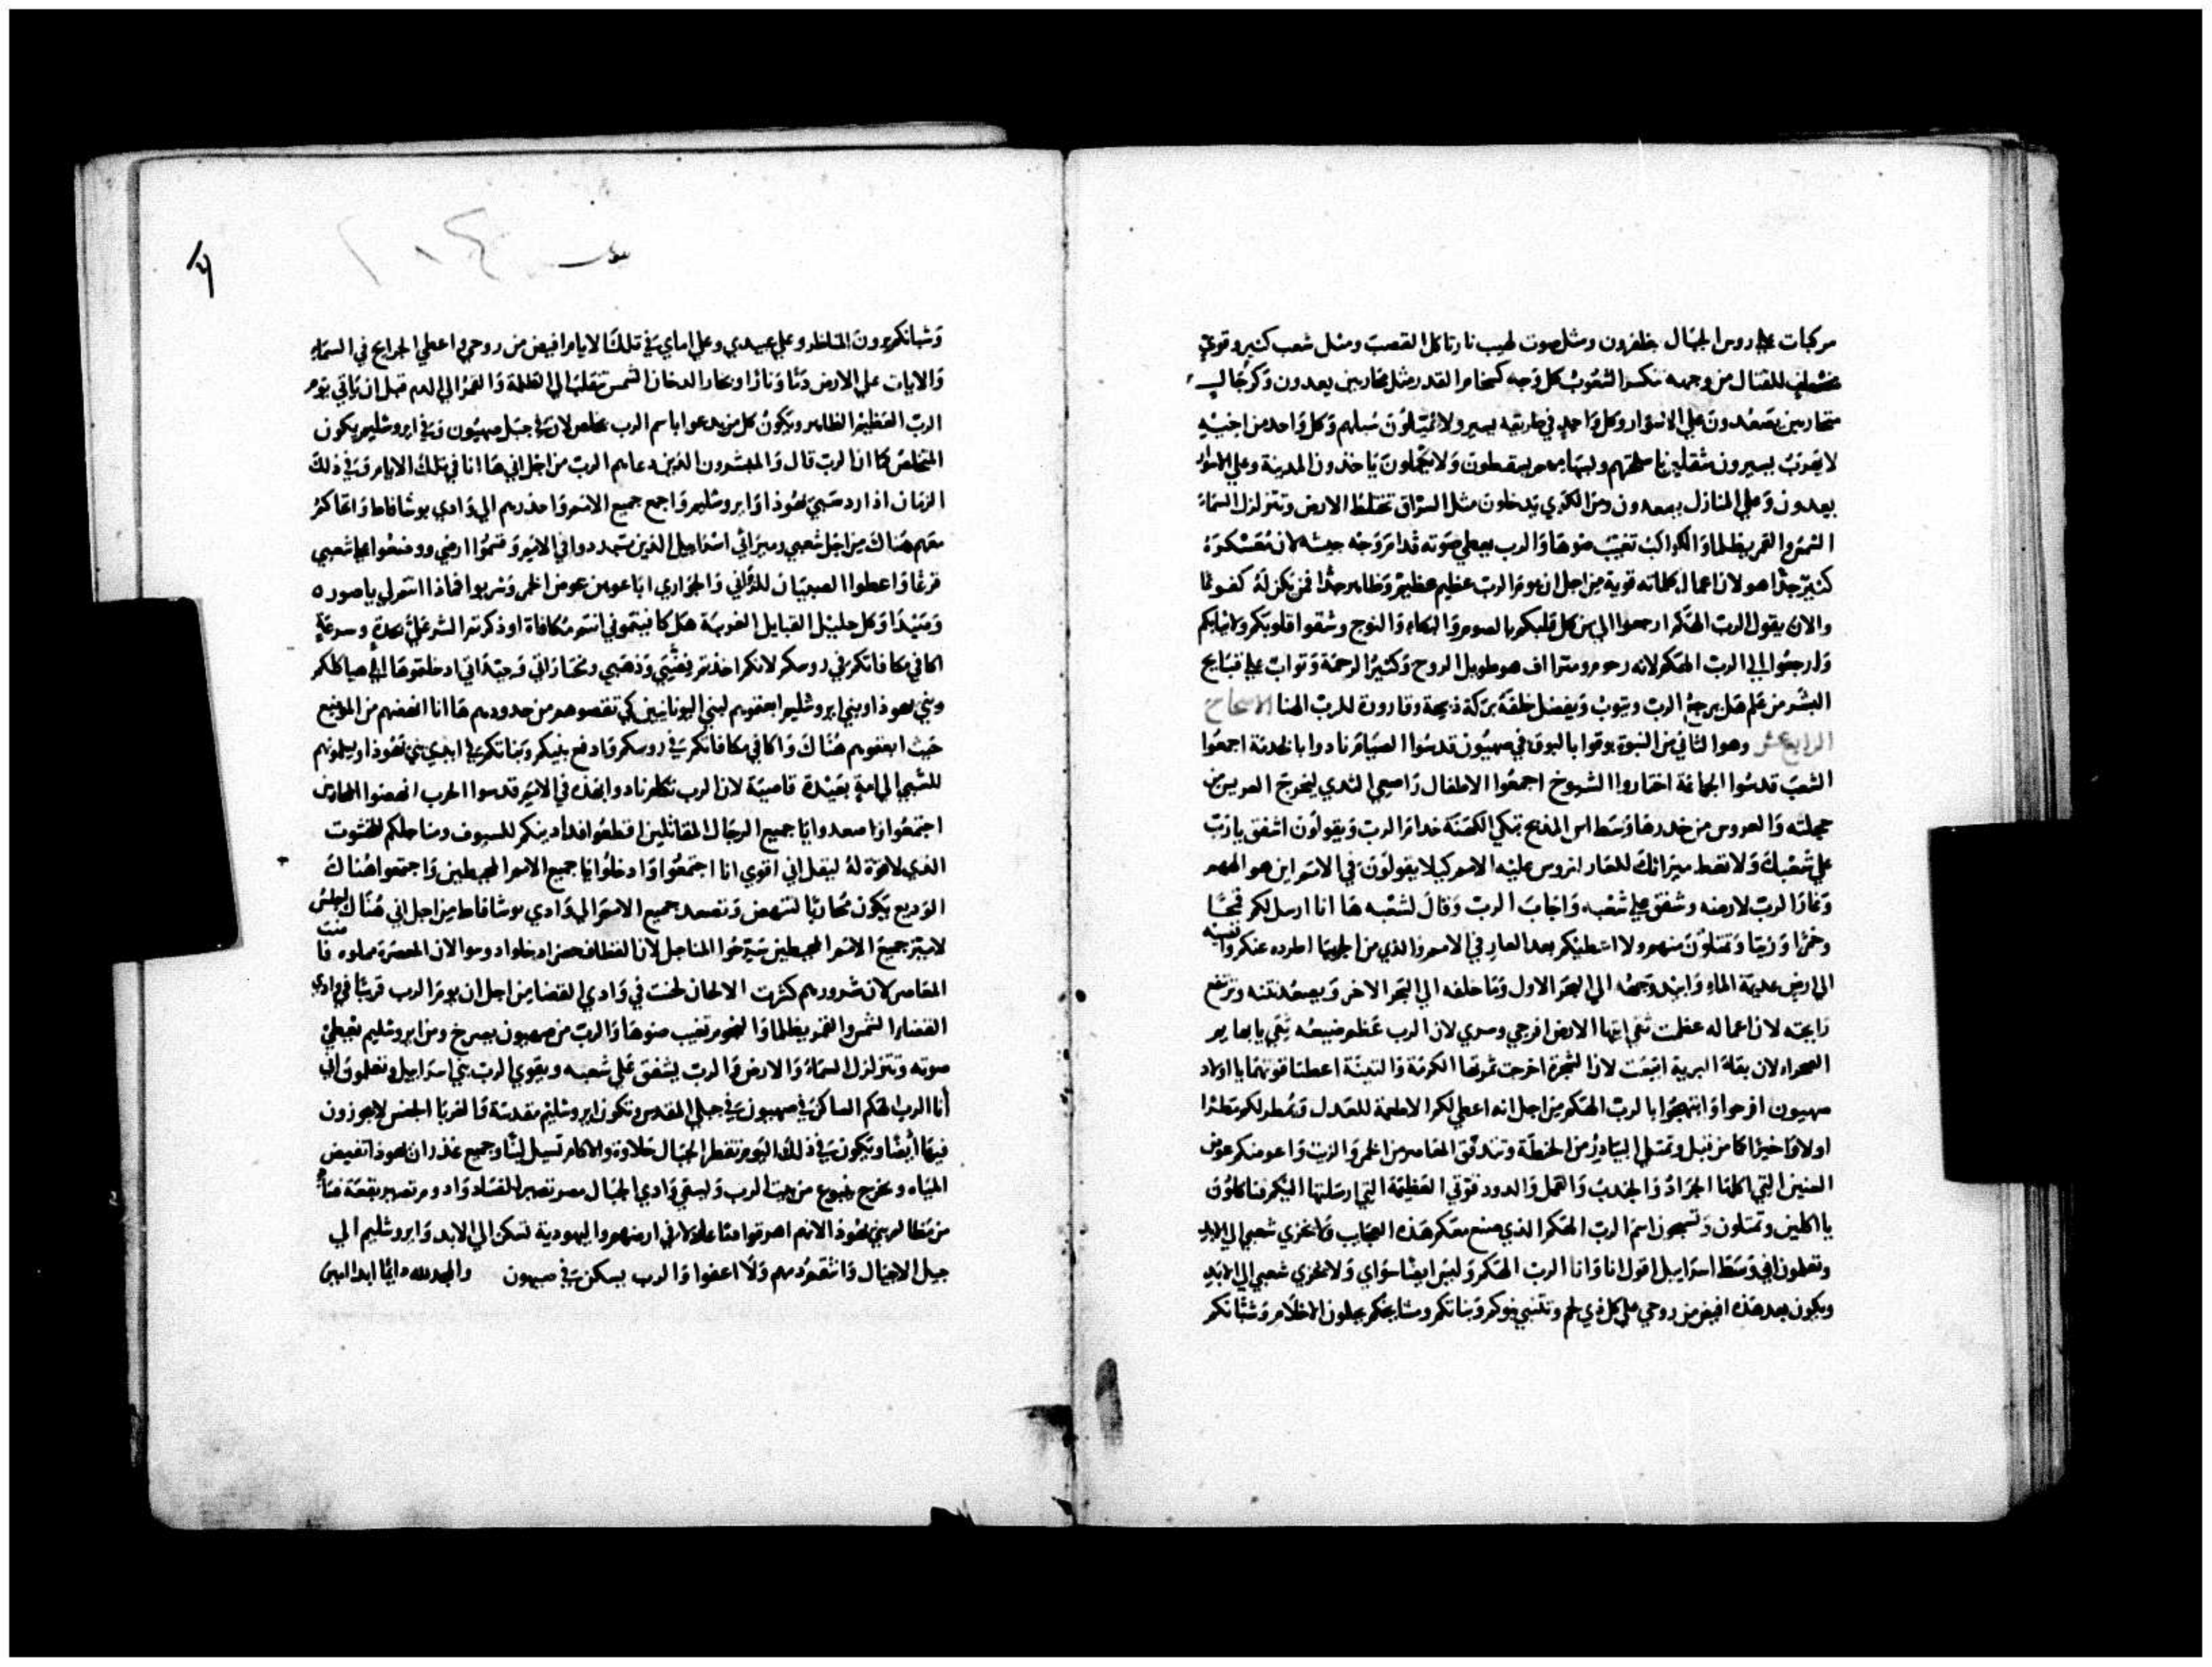 مركبات علي روس الجبال يظفرون ومثل صوت لهيب نار تاكل القصب ومثل شعب كثير وقوي
مصطف للقتال من وجهه تنكسر الشعوب كل وجه كسخام القدر مثل محاربين يعدون وكرجال
متحاربين يصعدون علي الاسوار وكل واحد في طريقه يسير ولا يميلون سبلهم وكل واحد من اخيه
لا يقرب يسيرون مثقلين باسلحتهم وبسهامهم يسقطون ولا يكملون ياخذون المدينة وعلي الاسوار
يعدون وعلي المنازل يصعدون ومن الكوي يدخلون مثل السراق تختلط الارض وتتزلزل السماء
الشمس والقمر يظلما والكواكب تغيب ضوها والرب يعطي صوته قدام وجه جيشه لان معسكره
كثير جدا هو لان اعمال كلماته قوية من اجل ان يوم الرب عظيم عظيم وظاهر جدا فمن يكن له كفوا لها
والان يقول الرب الهكم ارجعوا الي من كل قلبكم بالصوم والبكاء والنوح وشقوا قلوبكم ولا ثيابكم
وارجعوا الي الرب الهكم لانه رحوم ومتراف هو طويل الروح وكثير الرحمة وتواب علي قبايح
البشر من علم هل يرجع الرب ويتوب ويفضل خلفه بركة ذبيحة وقارورة للرب الهنا الاصحاح
الرابع عشر وهوا الثاني من النبوة بوقوا بالبوق في صهيون قدسوا الصيام نادوا بالخدمة اجمعوا
الشعب قدسوا الجماعة اختاروا الشيوخ اجمعوا الاطفال راضعي الثدي ليخرج العريس من
حجلته والعروس من خدرها وسط اس المذبح تبكي الكهنة خدام الرب ويقولون اشفق يارب
علي شعبك ولا تعط ميراثك للعار لتروس عليه الامم كيلا يقولون في الامم اين هو الههم
وغار الرب لارضه وشفق علي شعبه واجاب الرب وقال لشعبه ها انا ارسل لكم قمحا
وخمرا وزيتا وتمتلون منهم ولا اعطيكم بعد العار في الامم والذي من الجربيا اطرده عنكم وانفيه
الي ارض عديمة الماء وابيد وجهه الي البحر الاول وما خلفه الي البحر الاخر ويصعد نتنه وترتفع
رايحته لان اعماله عظمت ثقي ايتها الارض افرحي وسري لان الرب عظم صنيعه ثقي يا بهايم
الصحراء لان بقاع البرية انبتت لان الشجرة اخرجت ثمرتها الكرمة والتينة اعطتا قوتهما يا اولاد
صهيون افرحوا وابتهجوا بالرب الهكم من اجل انه اعطي لكم الاطعمة للعدل ويمطر لكم مطرا
اولا واخيرا كما من قبل وتمتلي البيادر من الحنطة وتتدفق المعاصر من الخمر والزيت واعوضكم عوض
السنين التي اكلها الجراد والجندب والقمل والدود قوتي العظيمة التي ارسلتها اليكم فتاكلون
يا اكلين وتمتلون وتسبحون اسم الرب الهكم الذي صنع معكم هذه العجايب ولا يخزي شعبي الي الابد
وتعلمون اني وسط اسراييل اقول انا وانا الرب الهكم وليس ايضا سواي ولا يخزي شعبي الي الابد
ويكون بعد هذه افيض من روحي علي كل ذي لحم وتتنبي بنوكم وبناتكم ومشايخكم يحلون الاحلام وشبانكم
وشبانكم يرون المناظر وعلي عبيدي وعلي اماي في تلك الايام افيض من روحي واعطي الجرايح في السماء
والايات علي الارض دما ونارا وبخار الدخان الشمس تنقلب الي الظلمة والقمر الي الدم قبل ان ياتي يوم
الرب العظيم الظاهر ويكون كل من يدعوا باسم الرب يخلص لان في جبل صهيون وفي ايروشليم يكون
المخلص كما ان الرب قال والمبشرون الذين دعاهم الرب من اجل اني ها انا في تلك الايام وفي ذلك
الزمان اذا ارد سبي يهوذا وايروشليم واجمع جميع الامم واحدرهم الي وادي يوشافاط واحاكم
معهم هناك من اجل شعبي وميراثي اسراييل الذين تبددوا في الامم وقسموا ارضي ووضعوا علي شعبي
قرعا واعطوا الصبيان للزواني والجواري اباعوهن عوض الخمر وشربوا فماذا انتم لي يا صور
وصيدا وكل جليل القبايل الغريبة هل كافيتموني انتم مكافاة او ذكرتم الشر علي بحدة وسرعة
اكافي مكافاتكم في روسكم لانكم اخذتم فضتي وذهبي ومختاراتي وجيداتي ادخلتموها الي هياكلكم
وبني يهوذا وبني ايروشليم ابعتوهم لبني اليونانيين كي تقصوهم من حدودهم ها انا انهضهم من الموضع
حيث ابعتوهم هناك واكافي مكافاتكم في روسكم وادفع بنيكم وبناتكم في ايدي بني يهوذا ويبيعونهم
للسبي الي امة بعيدة قاصية لان الرب تكلم نادوا بهذه في الامم قدسوا الحرب انهضوا المحاربين
اجتمعوا واصعدوا يا جميع الرجال المقاتلين اقطعوا فدادينكم للسيوف ومناجلكم للخشوت
الذي لا قوة له ليقل اني اقوي انا اجتمعوا وادخلوا يا جميع الامم المحيطين واجتمعوا هناك
الوديع يكون محاربا لتنهض وتصعد جميع الامم الي وادي يوشافاط من اجل اني هناك اجلس
لاميز جميع الامم المحيطين سرحوا المناجل لان القطاف حضر ادخلوا دوسوا لان المعصرة مملوه فاضت
المعاصر لان شرورهم كثرت الالحان لحنت في وادي القضا من اجل ان يوم الرب قريبا في وادي
القضاء الشمس والقمر يظلما والنجوم تغيب ضوها والرب من صهيون يصرخ ومن ايروشليم يعطي
صوته وتتزلزل السماء والارض والرب يشفق علي شعبه ويقوي الرب بني اسراييل وتعلمون اني
أنا الرب الهكم الساكن في صهيون في جبلي المقدس وتكون ايروشليم مقدسة والغربا الجنس لا يجوزون
فيها أيضا ويكون في ذلك اليوم تقطر الجبال حلاوة والاكام تسيل لبنا وجميع غدران يهوذا تفيض
المياه ويخرج ينبوع من بيت الرب ويسقي وادي الجبال مصر تصير للفساد وادوم تصير بقعة فناء
من مظالم بني يهوذا لانهم اهرقوا دما عادلا في ارضهم واليهودية تسكن الي الابد وايروشليم الي
جيل الاجيال وانتقم دمهم ولا اعفوا والرب يسكن في صهيون والمجد لله دايما ابدا امين